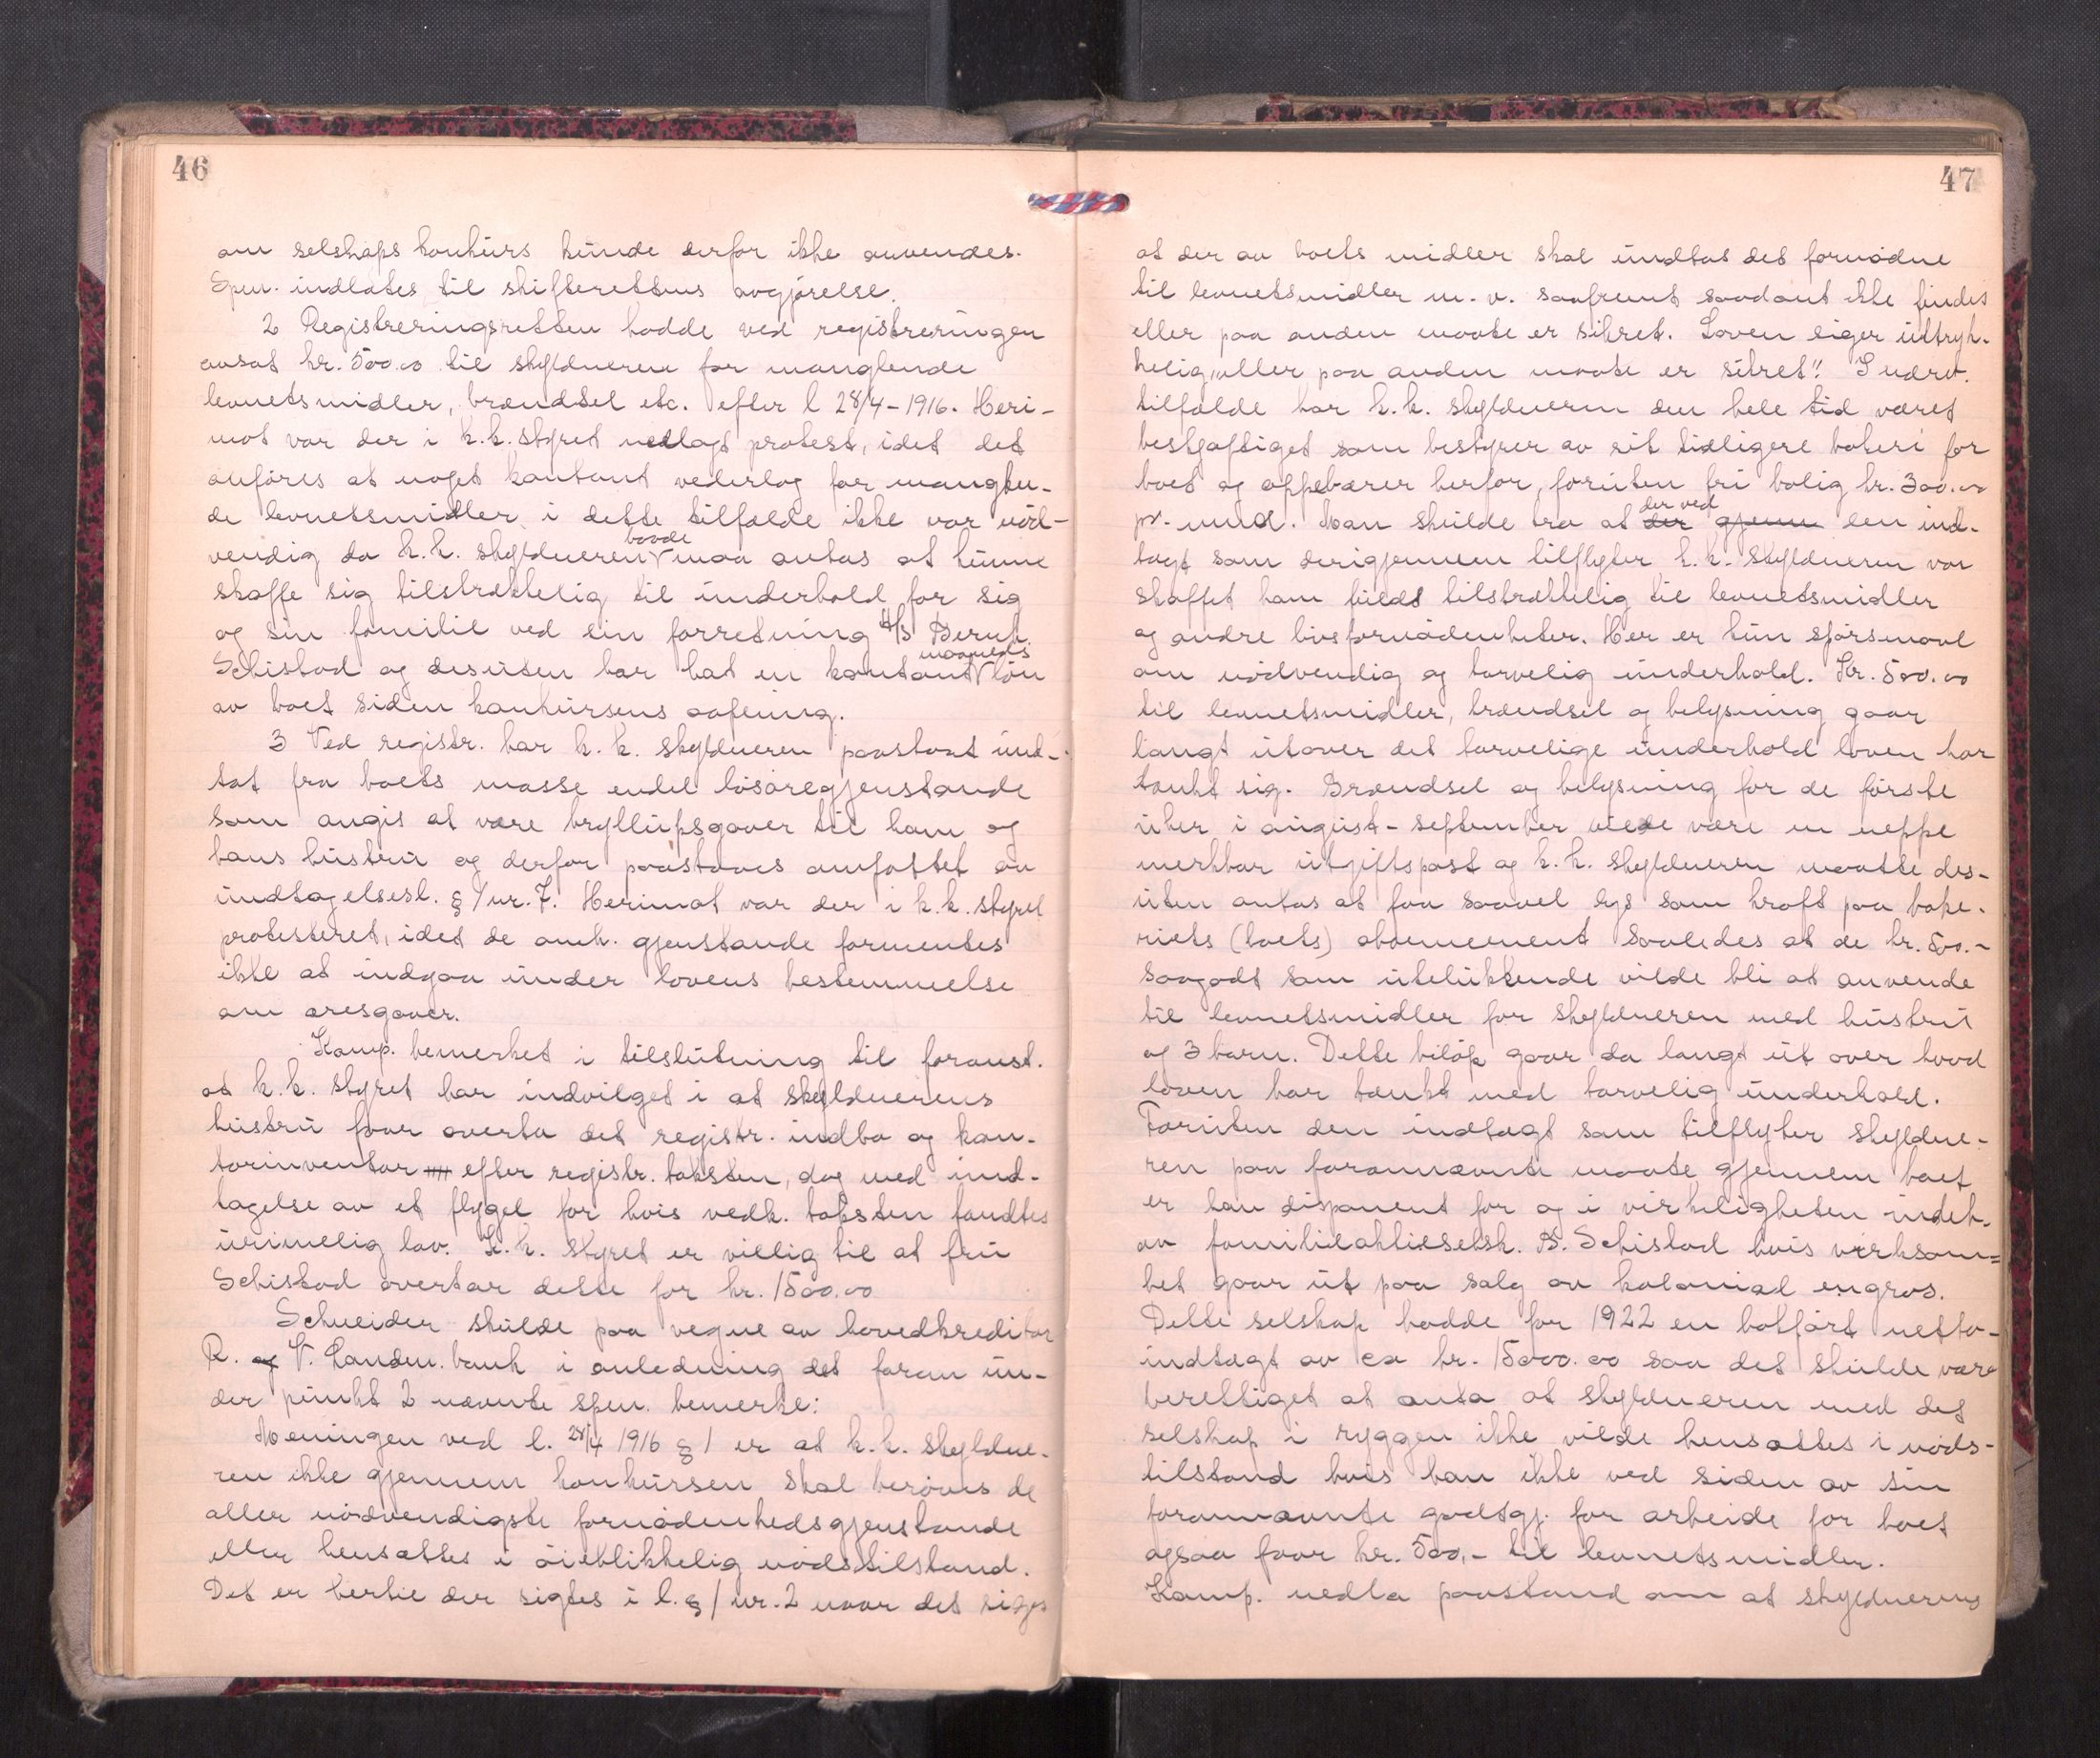 46
om selskaps konkurs kunde derfor ikke anvendes.
Spm. indlates til skifterettens avgjørelse.
2 Registreringsretten hadde ved registreringen
avsat kr. 500.00 til skyldneren for manglende
levnetsmidler, brændsel etc. efter l 28/4-1916. Heri-
mot var der i k.k. styret nedlagt protest, idet det
anføres at noget kontant vederlag for manglen-
de levnetsmidler i dette tilfælde ikke var nød-
vendig da k.k. skyldneren baade maa antas at kunne
skaffe sig tilstrækkelig til underhold for sig
og sin familie ved sin forretning A/S Bernh.
Schistad og desuten har hat en kontant maaneds løn
av boet siden konkursens aapning.
3 Ved registr. har k.k. skyldneren paastaat und-
tat fra boets masse endel løsøregjenstande
som angis at være bryllupsgaver til ham og
hans hustru og derfor paastaaes omfattet av
undtagelsesl. § 1 nr. 7. Herimot var der i k.k. styret
protesteret, idet de omh. gjenstande formentes
ikke at indgaa under lovens bestemmelse
om æresgaver.
Komp. bemerket i tilslutning til foranst.
at k.k. styret har indvilget i at skyldnerens
hustru faar overta det registr. indbo og kon-
torinventar efter registr. taksten, dog med und-
tagelse av et flygel for hvis vedk. taksten fandtes
urimelig lav. K.k. styret er villig til at fru
Schistad overtar dette for kr. 1500.00
Schneider skulde paa vegne av hovedkreditor
R. og V. Landm. bank i anledning det foran un-
der punkt 2 nævnte spm. bemerke:
Meningen ved l. 28/4 1916 § 1 er at k.k. skyldne-
ren ikke gjennem konkursen skal berøves de
aller nødvendigste fornødenhedsgjenstande
eller hensættes i øieblikkelig nødstilstand.
Det er hertil der sigtes i l. § 1 nr. 2 naar det siges
47
at der av boets midler skal undtas det fornødne
til levnetsmidler m.v. saafremt saadant ikke findes
eller paa anden maate er sikret. Loven siger uttryk-
kelig "eller paa anden maate er sikret". I nærv.
tilfælde har k.k. skyldneren den hele tid været
beskjæftiget som bestyrer av sit tidligere bakeri for
boet og oppebærer herfor, foruten fri bolig kr. 300.00
pr. mnd. Man skulde tro at der gjenn der ved den ind-
tægt som derigjennem tilflyter k.k. skyldneren var
skaffet ham fuldt tilstrækkelig til levnetsmidler
og andre livsfornødenheter. Her er kun spørsmaal
om nødvendig og tarvelig underhold. Kr. 500.00
til levnetsmidler, brændsel og belysning gaar
langt utover det tarvelige underhold loven har
tænkt sig. Brændsel og belysning for de første
uker i august-september vilde være en neppe
merkbar utgiftspost og k.k. skyldneren maatte des-
uten antas at faa saavel lys som kraft paa bake-
riets (boets) abonnement saaledes at de kr. 500.-
saagodt som utelukkende vilde bli at anvende
til levnetsmidler for skyldneren med hustru
og 3 barn. Dette beløp gaar da langt ut over hvad
loven har tænkt med tarvelig underhold.
Foruten den indtægt som tilflyter skyldne-
ren paa forannævnte maate gjennem boet
er han disponent for og i virkeligheten indeh.
av familieaktieselsk. B. Schistad hvis virksom-
het gaar ut paa salg av kolonial engros.
Dette selskap hadde for 1922 en bokført netto-
indtægt av ca kr. 15000.00 saa det skulde være
berettiget at anta at skyldneren med det
selskap i ryggen ikke vilde hensættes i nøds-
tilstand hvis han ikke ved siden av sin
forannævnte godtgj. for arbeide for boet
ogsaa faar kr. 500,- til levnetsmidler.
Komp. nedla paastand om at skyldnerens